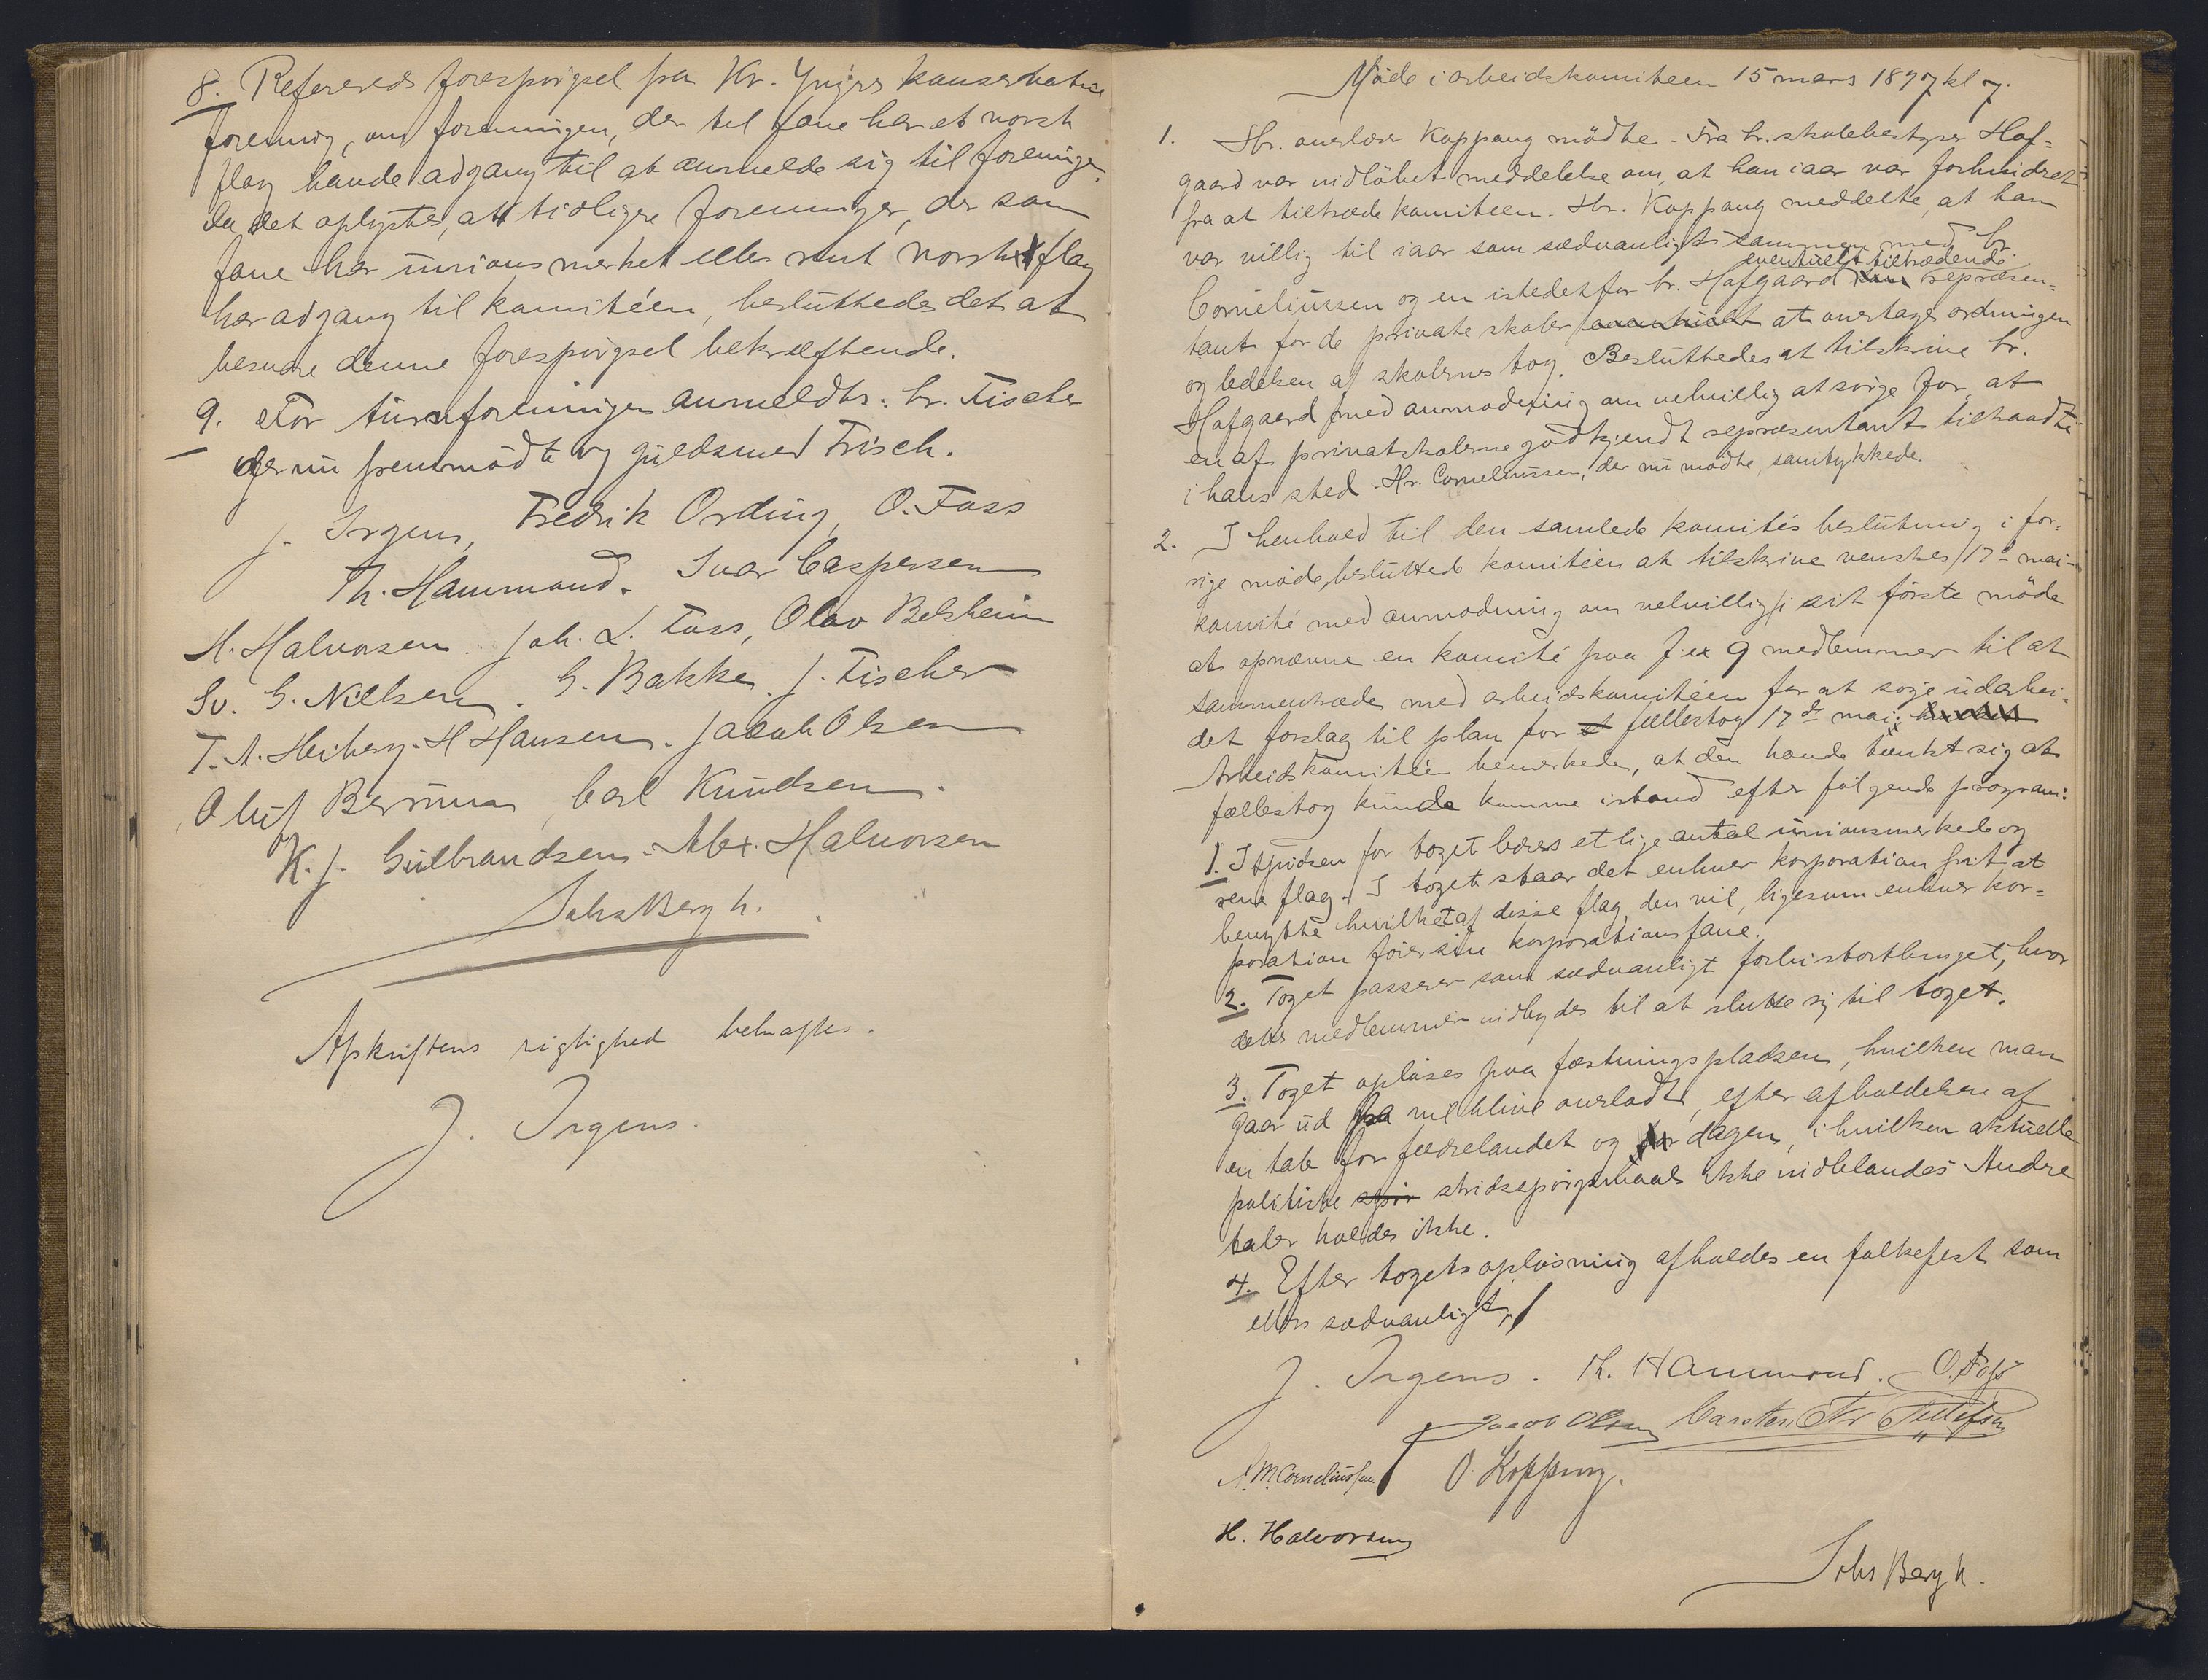 8. Refereredes forespörgsel fra Kr. Yngres konservative
forening, om foreningen, der til fane har et norsk
flag havde adgang til at anmelde sig til foreninge.
da det oplystes, at tidligere foreninger, der som
fane har unionsmerket eller rent norsk flag
har adgang til komitéen, besluttedes det at
besvare denne forespörgsel bekræftende.
9. For turnforeningen anmeldtes: hr. Fischer
der nu fremmödte og guldsmed Frisch.
J. Irgens, Fredrik Ording, O. Foss
Th. Hammond. Ivar Caspersen
H. Halvorsen. Joh. L. Foss, Olav Belsheim
Sv. G. Nielsen. G. Bakke. J. Fischer
T. A. Heiberg. H Hansen. Jacob Olsen
Oluf Berrum, Carl Knudsen.
K. J. Gulbrandsen. Alex. Halvorsen
Johs Bergh.
Afskriftens rigtighed bekræftes.
J. Irgens.
Möde i arbeidskomiteen 15 mars 1897 kl 7.
1. Hr. overlærer Koppang mödte. Fra hr. skolebestyrer Hof=
gaard var indlöbet meddelelse om, at han iaar var forhindret
fra at tiltræde komiteen. Hr. Koppang meddelte, at han
var villig til iaar som sædvanligt sammen med hr.
eventuelt tiltrædende
Corneliussen og en istedetfor hr. Hofgaard repræsen=
tant for de private skoler eventuelt at overtage ordningen
og ledelsen af skolernes tog. Besluttedes at tilskrive hr.
Hofgaard med anmodning om velvillig at sörge for, at
en af privatskolerne godkjendt repræsentant tiltraadte
i hans sted. Hr. Corneliussen, der nu mödte, samtykkede.
2. I henhold til den samlede komités beslutning i for=
rige möde, besluttede komitéen at tilskrive venstres 17de mai-
komité med anmodning om velvilligst i sit förste möde
at opnævne en komité paa f. ex 9 medlemmer til at
sammentræde med arbeidskomitéen for at söge udarbei=
det forslag til plan for et fællestog 17de mai.
Arbeidskomitéen bemerkede, at den havde tænkt sig at
fællestog kunde komme istand efter fölgende program:
1. I spidsen for toget bæres et lige antal unionsmerkede og
rene flag. I toget staar det enhver korporation frit at
benytte hvilket af disse flag, den vil, ligesom enhver kor=
poration förer sin korporationsfane.
2. Toget passerer som sædvanligt forbi stortinget, hvor
dettes medlemmer indbydes til at slutte sig til toget.
3. Toget oplöses paa fæstningspladsen, hvilken man
gaar ud fra vil blive overladt, efter afholdelsen af
en tale for fædrelandet og for dagen, i hvilken aktuelle
politiske spör stridsspörgsmaal ikke indblandes. Andre
taler holdes ikke.
4. Efter togets oplösning afholdes en folkefest som
ellers sædvanligt.
J. Irgens. Th. Hammond. O. Foss
Jacob Olsen Carsten Fr Tellefsen
A. M. Corneliussen O. Koppang.
H. Halvorsen
Johs Bergh.